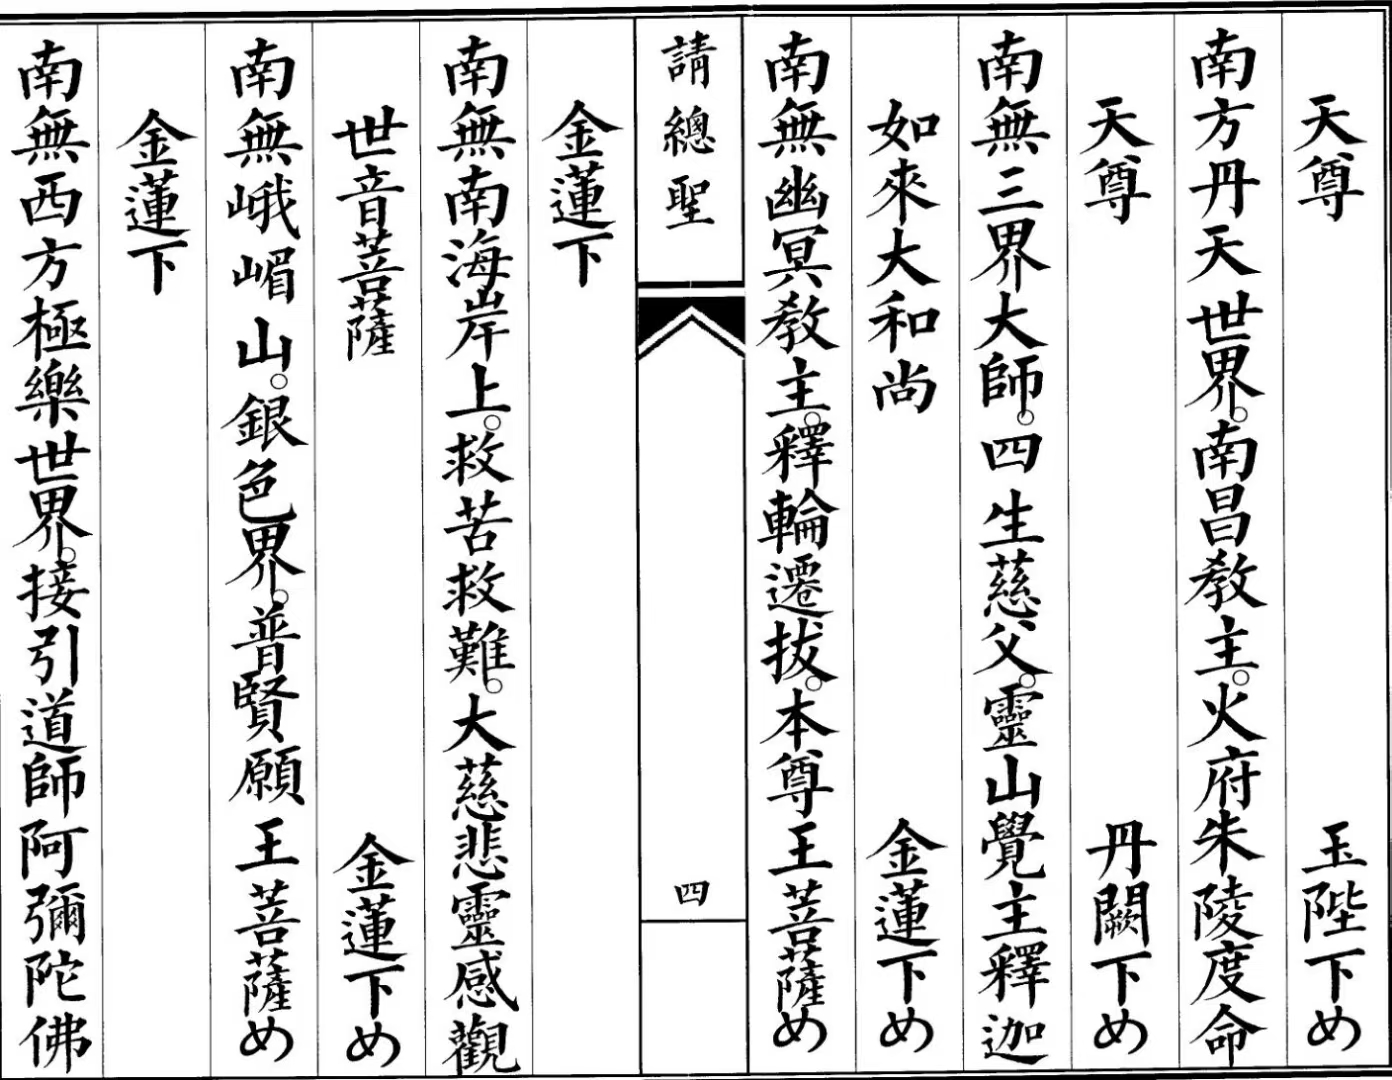 天尊　玉陛下め
南方丹天世界。南昌教主。火府朱陵度命
天尊　丹闕下め
南無三界大師。四生慈父。靈山覺主釋迦
如來大和尚　金蓮下め
南無幽冥教主。釋輪遷拔。本尊王菩薩め
請總聖　四
金蓮下
南無南海岸上。救苦救難。大慈悲靈感觀
世音菩薩　金蓮下め
南無峨嵋山。銀色界。普賢願王菩薩め
金蓮下
南無西方極樂世界。接引道師阿彌陀佛